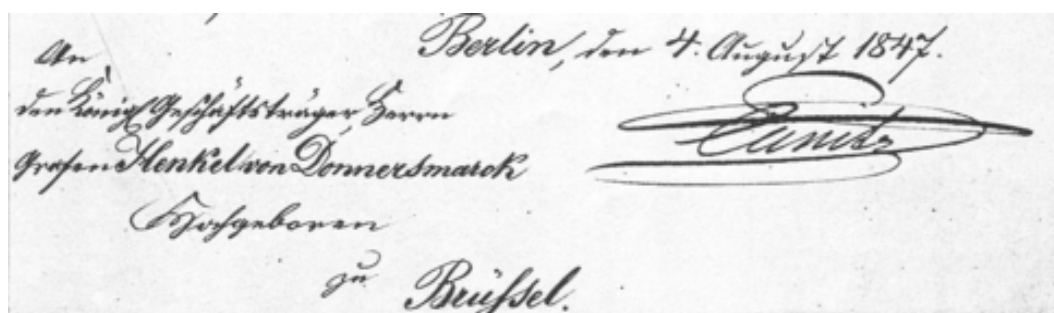 Berlin, den 4. August 1847.
An
den Königl Geschäftsträger, Herrn
Grafen Henkel von Donnersmarck
Canitz
Hochgeboren
zu Brüssel.